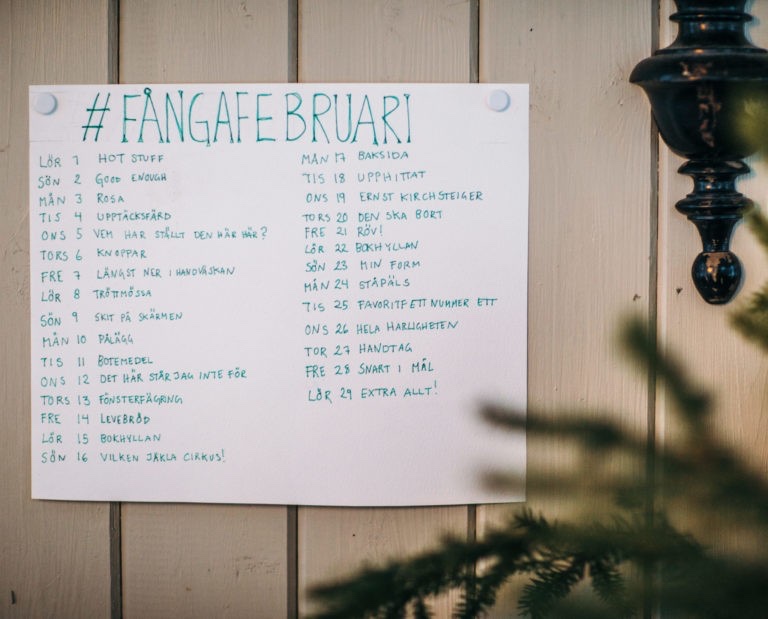 #FÅNGAFEBRUARI
LÖR 1 HOT STUFF
SÖN 2 GOOD ENOUGH
MÅN 3 ROSA
TIS 4 UPPTÄCKSFÄRD
ONS 5 VEM HAR STÄLLT DEN HÄR HÄR?
TORS 6 KNOPPAR
FRE 7 LÄNGST NER I HANDVÄSKAN
LÖR 8 TRÖTTMÖSSA
SÖN 9 SKIT PÅ SKÄRMEN
MÅN 10 PÅLÄGG
TIS 11 BOTEMEDEL
ONS 12 DET HÄR STÅR JAG INTE FÖR
TORS 13 FÖNSTERFÄGRING
FRE 14 LEVEBRÖD
LÖR 15 BOKHYLLAN
SÖN 16 VILKEN JÄKLA CIRKUS!
MÅN 17 BAKSIDA
TIS 18 UPPHITTAT
ONS 19 ERNST KIRCHSTEIGER
TORS 20 DEN SKA BORT
FRE 21 RÖV!
LÖR 22 BOKHYLLAN
SÖN 23 MIN FORM
MÅN 24 STÅPÄLS
TIS 25 FAVORITFETT NUMMER ETT
ONS 26 HELA HÄRLIGHETEN
TOR 27 HANDTAG
FRE 28 SNART I MÅL
LÖR 29 EXTRA ALLT!